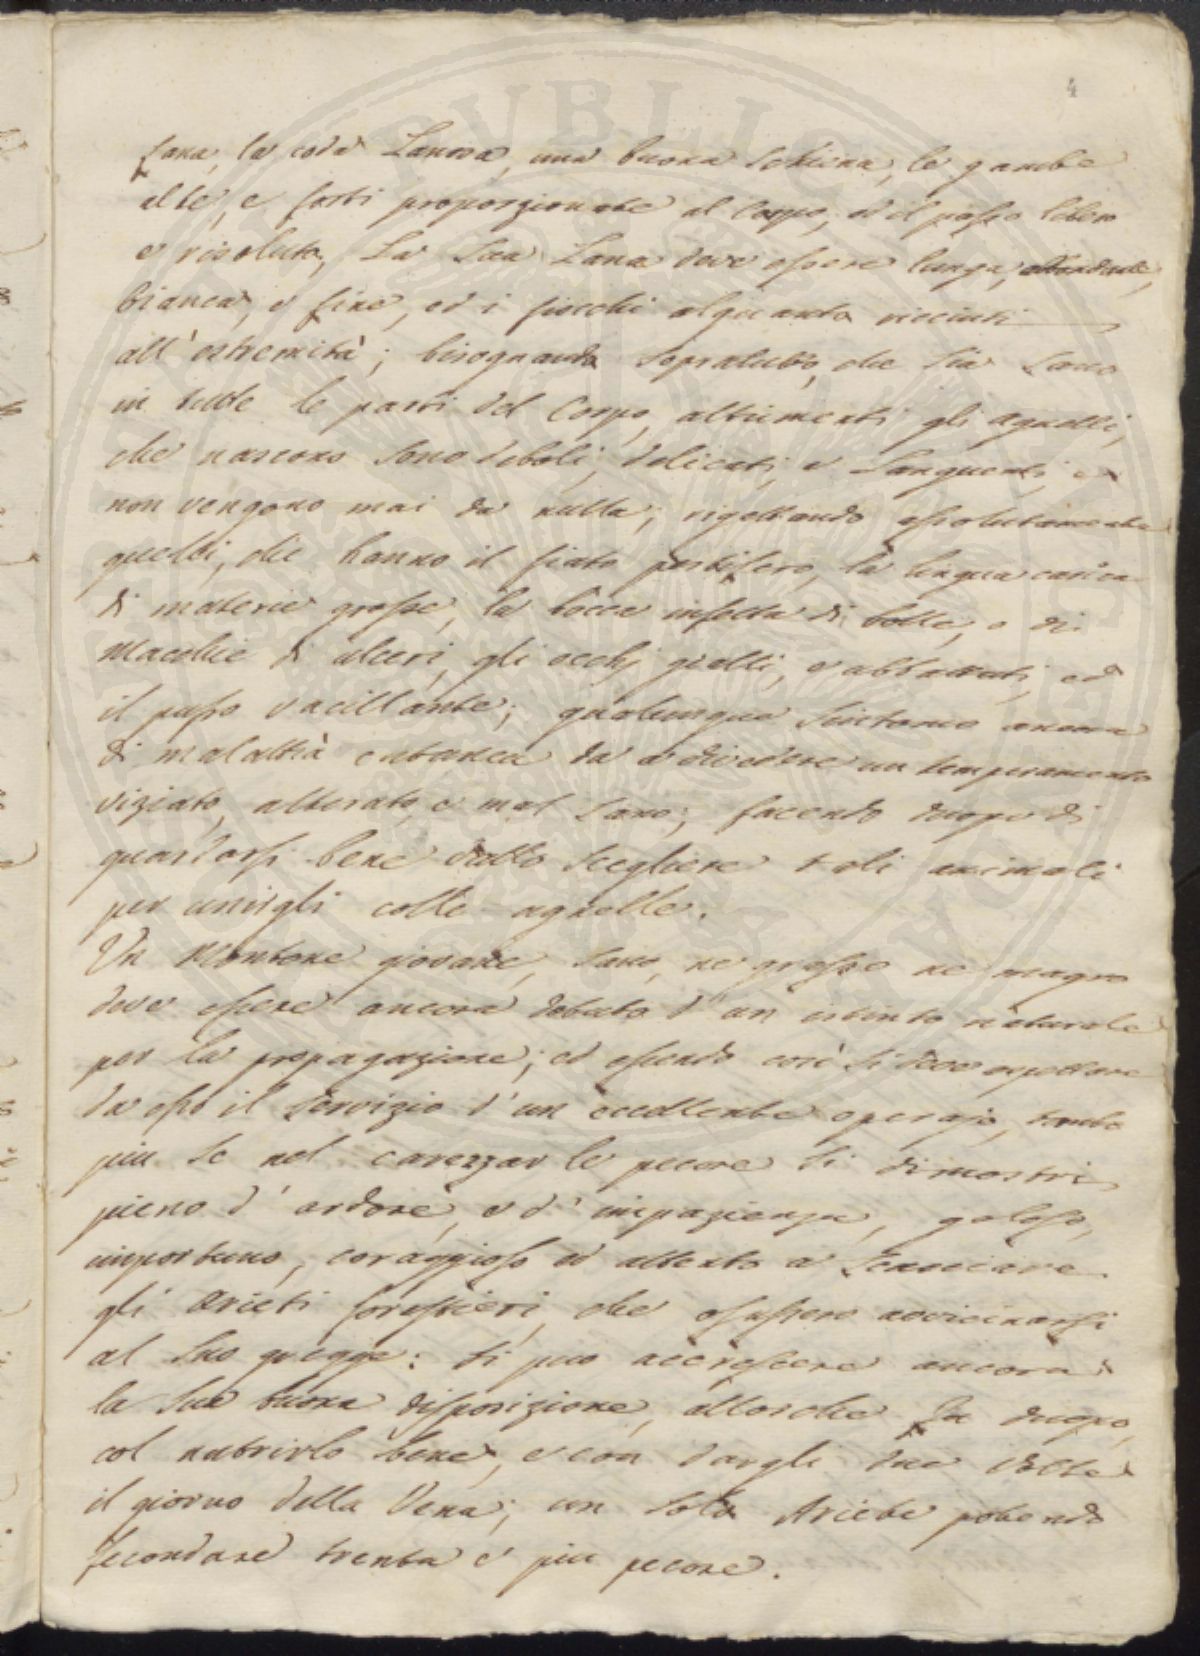 4
sana, la coda Lanosa, una buona schiena, le gambe
alte, e forti proporzionate al Corpo, ed il passo libero
e risoluto, La Sua Lana deve essere lunga, abbondante,
bianca, e fine, ed i fiocchi alquanto ricciuti
all'estremità; bisognando sopratutto, che sia sano
in tutte le parti del Corpo, altrimenti gli agnelli,
che nascono sono deboli, delicati, e Languenti, e
non vengono mai da nulla; rigettando assolutamente
quelli, che hanno il fiato pestifero, la lingua carica
di materie grosse, la bocca infetta di bolle, o di
Macchie di ulceri, gli occhj gialli, e abbattuti, ed
il passo vacillante; qualunque Sintomo ancora
di malattia cutanea da a divedere un temperamento
viziato, alterato, e mal sano; facendo duopo di
guardarsi bene dallo scegliere tali animali
per unirgli colle agnelle.
Un Montone giovane, sano, ne grasso ne magro
deve essere ancora dotato d'un istinto naturale
per la propagazione; ed essendo così si deve aspettare
da esso il servizio d'un eccellente operajo, tanto
piu se nel carezzar le pecore si dimostri
pieno d'ardore, e d'impazienza, geloso,
importuno, coraggioso ed attento a scacciare
gli Arieti forestieri, che osassero avvicinarsi
al suo gregge: si puo accrescere ancora
la sua buona disposizione, allorche fa duopo,
col nutrirlo bene, e con dargli due volte
il giorno della Vena; un solo Ariete potendo
fecondare trenta e piu pecore.
PVBLIC